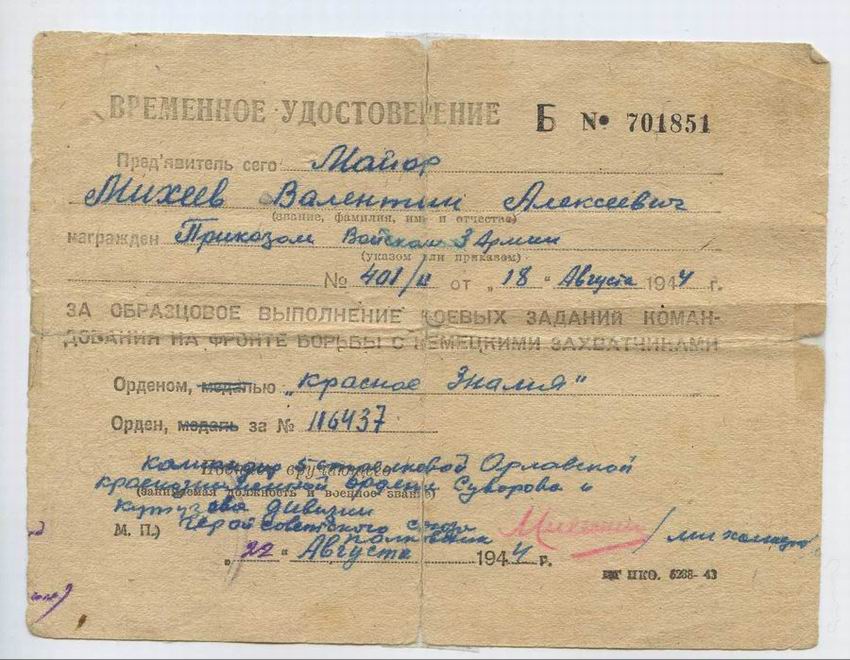 ВРЕМЕННОЕ УДОСТОВЕРЕНИЕ Б № 701851
Пред'явитель сего Майор
Михеев Валентин Алексеевич
(звание, фамилия, имя и отчество)
награжден Приказом Войскам 3 Армии
(указом или приказом)
№ 401/н от „18“ Августа 1944 г.
ЗА ОБРАЗЦОВОЕ ВЫПОЛНЕНИЕ БОЕВЫХ ЗАДАНИЙ КОМАН-
ДОВАНИЯ НА ФРОНТЕ БОРЬБЫ С НЕМЕЦКИМИ ЗАХВАТЧИКАМИ
Орденом, медалью „Красное Знамя"
Орден, медаль за № 116437
командир 5 стрелковой Орловской
краснознаменной ордена Суворова и
(занимаемая должность и военное звание)
Кутузова дивизии
М. П.) Герой советского союза
полковник
„22“ Августа 1944 г.
НКО. 5268-43